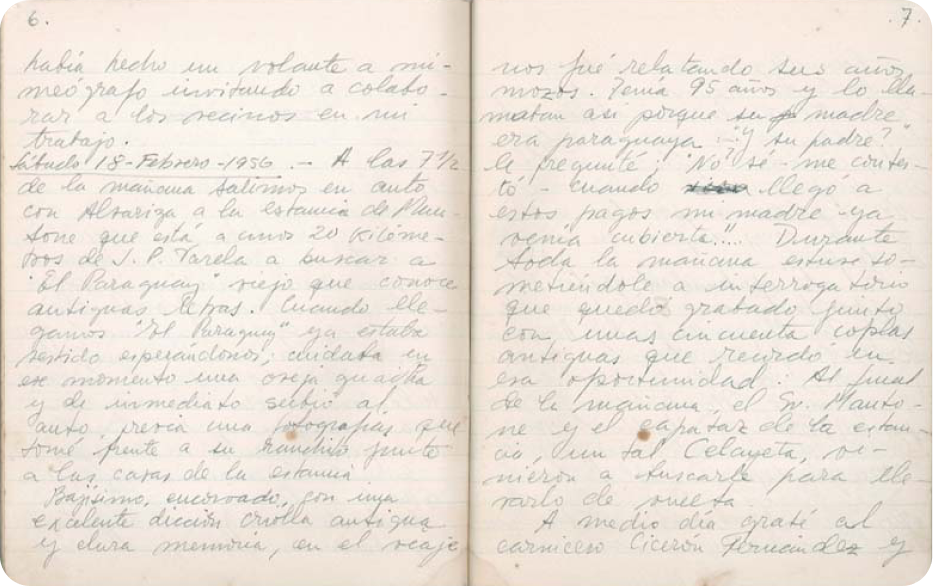 6.
había hecho un volante a mi-
meógrafo invitando a colabo-
rar a los vecinos en mi
trabajo.
Sábado 18-Febrero-1956.- A las 7 1/2
de la mañana salimos en auto
con Alvariza a la estancia de Man-
tone que está a unos 20 kilóme-
tros de J. P. Varela a buscar a
"El Paraguay" viejo que conoce
antiguas letras. Cuando lle-
gamos "El Paraguay" ya estaba
vestido esperándonos; cuidaba en
ese momento una oveja guacha
y de inmediato subió al
auto, previa una fotografías que
tomé frente a su ranchito junto
a las casas de la estancia
Bajísimo, encorvado, con una
excelente dicción criolla antigua
y clara memoria, en el viaje
7.
nos fué relatando sus años
mozos. Tenía 95 años y lo lla-
maban asi porque su madre
era paraguaya. "Y su padre?"
le pregunté: "No sé - me contes-
tó - cuando llegó a
estos pagos mi madre ya
venía cubierta!".. Durante
toda la mañana estuve so-
metiéndole a interrogatorio
que quedó grabado junto
con unas cincuenta coplas
antiguas que recordó en
esa oportunidad. Al final
de la mañana, el Sr. Manto-
ne y el capataz de la estan-
cia, un tal Celayeta, vi-
nieron a buscarle para lle-
varlo de vuelta.
A medio día grabé al
carnicero Cicerón Fernández y